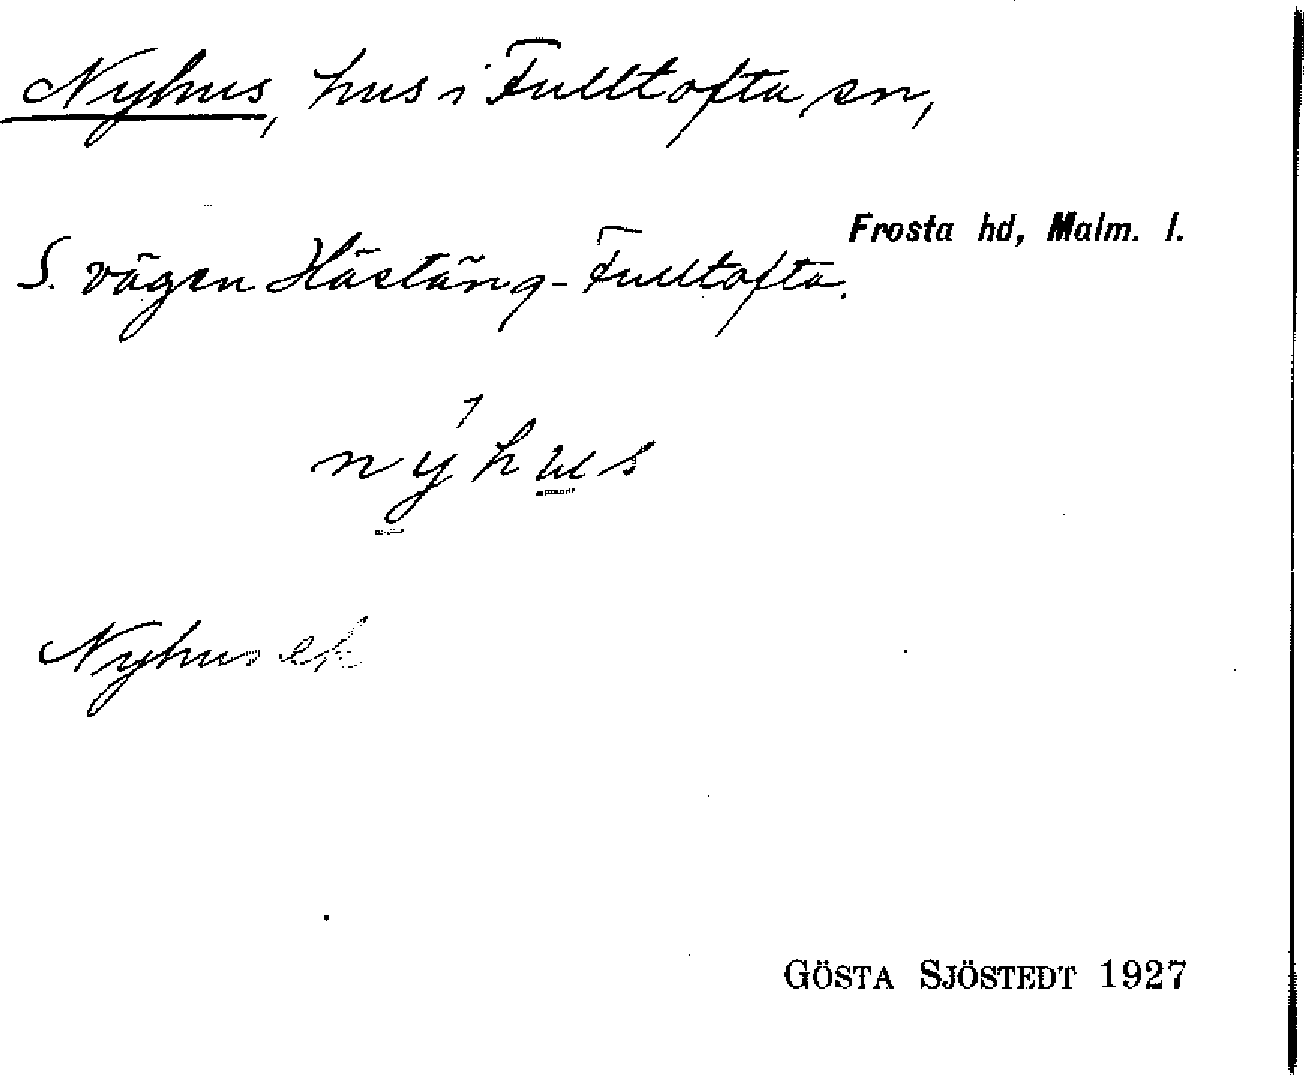 Nyhus, hus i Fulltofta sn,
Frosta hd, Malm. l.
S. vägen Hästäng-Fulltofta.
nýhus
Nyhus ek
GÖSTA SJÖSTEDT 1927